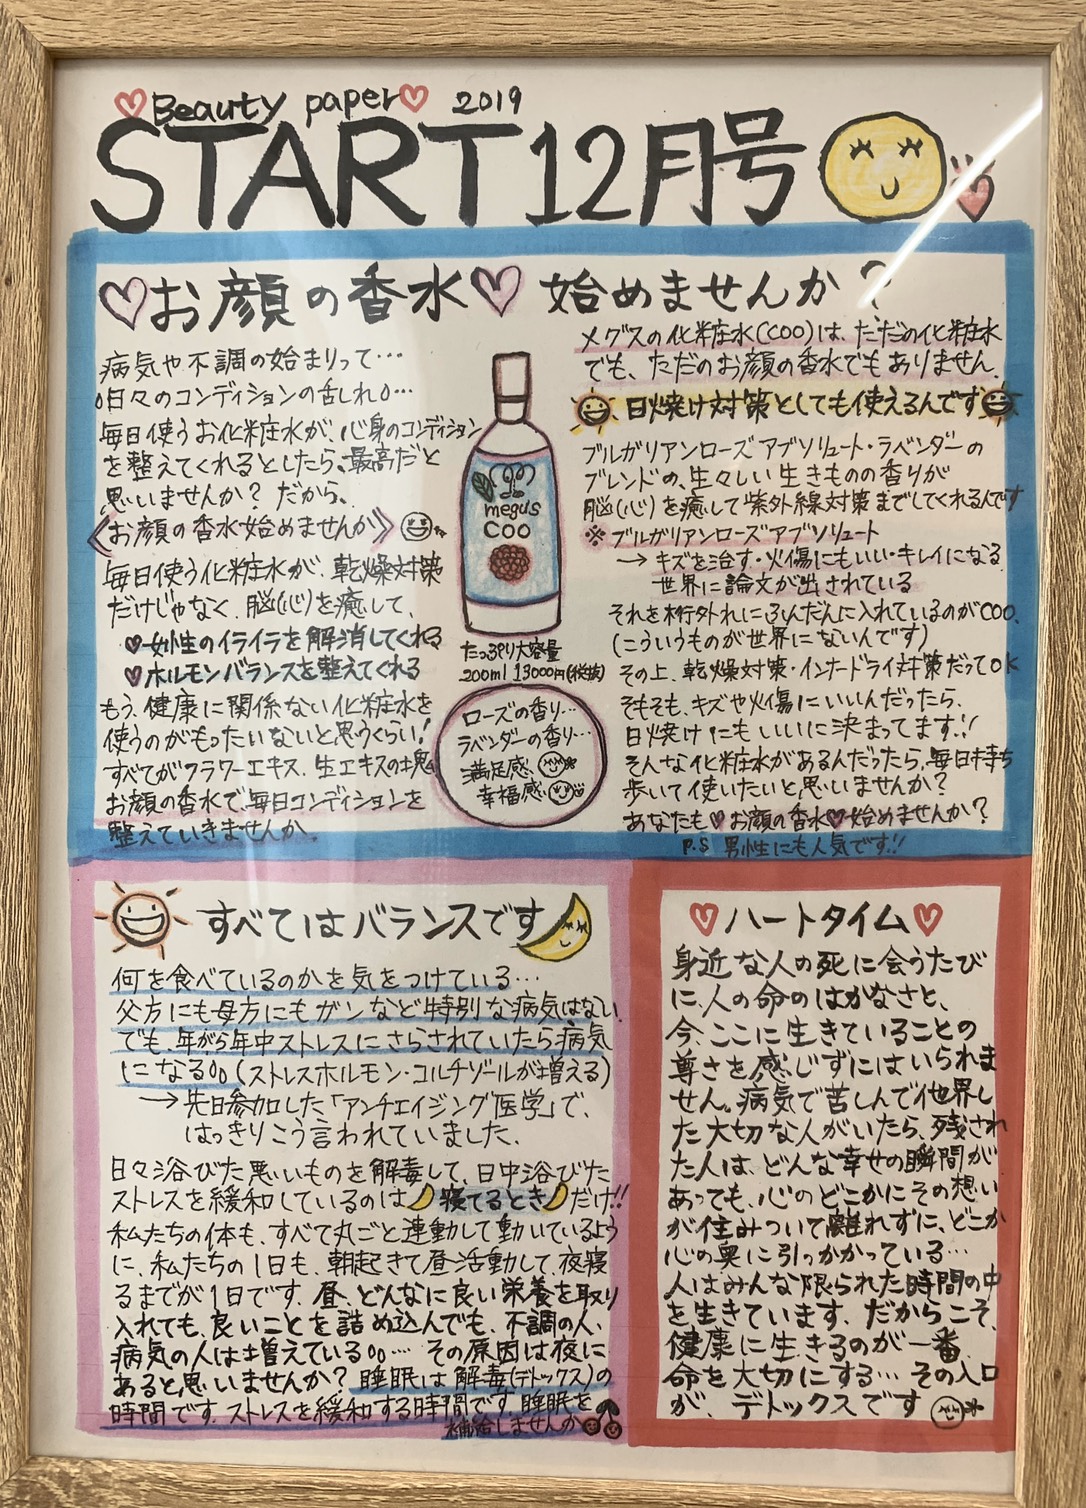 ♡Beauty paper♡ 2019
START 12月号
♡お顔の香水♡ 始めませんか?
病気や不調の始まりって…
日々のコンディションの乱れ…
毎日使うお化粧水が、心身のコンディション
を整えてくれるとしたら、最高だと
思いませんか? だから、
《お顔の香水始めませんか》
毎日使う化粧水が、乾燥対策
だけじゃなく、脳(心)を癒して、
♥女性のイライラを解消してくれる
♥ホルモンバランスを整えてくれる
もう、健康に関係ない化粧水を
使うのがもったいないと思うくらい!
すべてがフラワーエキス、生エキスの塊
お顔の香水で、毎日コンディションを
整えていきませんか。
megus
COO
たっぷり大容量
200ml 13000円(税抜)
ローズの香り…
ラベンダーの香り…
満足感
幸福感
メグスの化粧水(COO)は、ただの化粧水
でも、ただのお顔の香水でもありません。
日焼け対策としても使えるんです
ブルガリアンローズアブソリュート・ラベンダーの
ブレンドの、生々しい生きものの香りが
脳(心)を癒して紫外線対策までしてくれるんです
※ブルガリアンローズアブソリュート
→キズを治す・火傷にもいい・キレイになる
世界に論文が出されている
それを桁外れにふんだんに入れているのがCOO。
(こういうものが世界にないんです)
その上、乾燥対策・インナードライ対策だってOK
そもそも、キズや火傷にいいんだったら、
日焼けにもいいに決まってます!!
そんな化粧水があるんだったら、毎日持ち
歩いて使いたいと思いませんか?
あなたも♥お顔の香水♥始めませんか?
P.S 男性にも人気です!!
すべてはバランスです
何を食べているのかを気をつけている…
父方にも母方にもガンなど特別な病気はない。
でも、年がら年中ストレスにさらされていたら病気
になる。。(ストレスホルモン・コルチゾールが増える)
→先日参加した「アンチエイジング医学」で、
はっきりこう言われていました。
日々浴びた悪いものを解毒して、日中浴びた
ストレスを緩和しているのは寝てるときだけ!!
私たちの体も、すべて丸ごと連動して動いているよう
に、私たちの1日も、朝起きて昼活動して、夜寝
るまでが1日です。昼、どんなに良い栄養を取り
入れても、良いことを詰め込んでも、不調の人、
病気の人は増えている。。… その原因は夜に
あると思いませんか?睡眠は解毒(デトックス)の
時間です。ストレスを緩和する時間です。睡眠を
補給しませんか
♡ハートタイム♡
身近な人の死に会うたび
に、人の命のはかなさと、
今、ここに生きていることの
尊さを感じずにはいられま
せん。病気で苦しんで他界し
た大切な人がいたら、残され
た人は、どんな幸せの瞬間が
あっても、心のどこかにその想い
が住みついて離れずに、どこか
心の奥に引っかかっている…
人はみんな限られた時間の中
を生きています。だからこそ、
健康に生きるのが一番。
命を大切にする… その入口
が、デトックスです